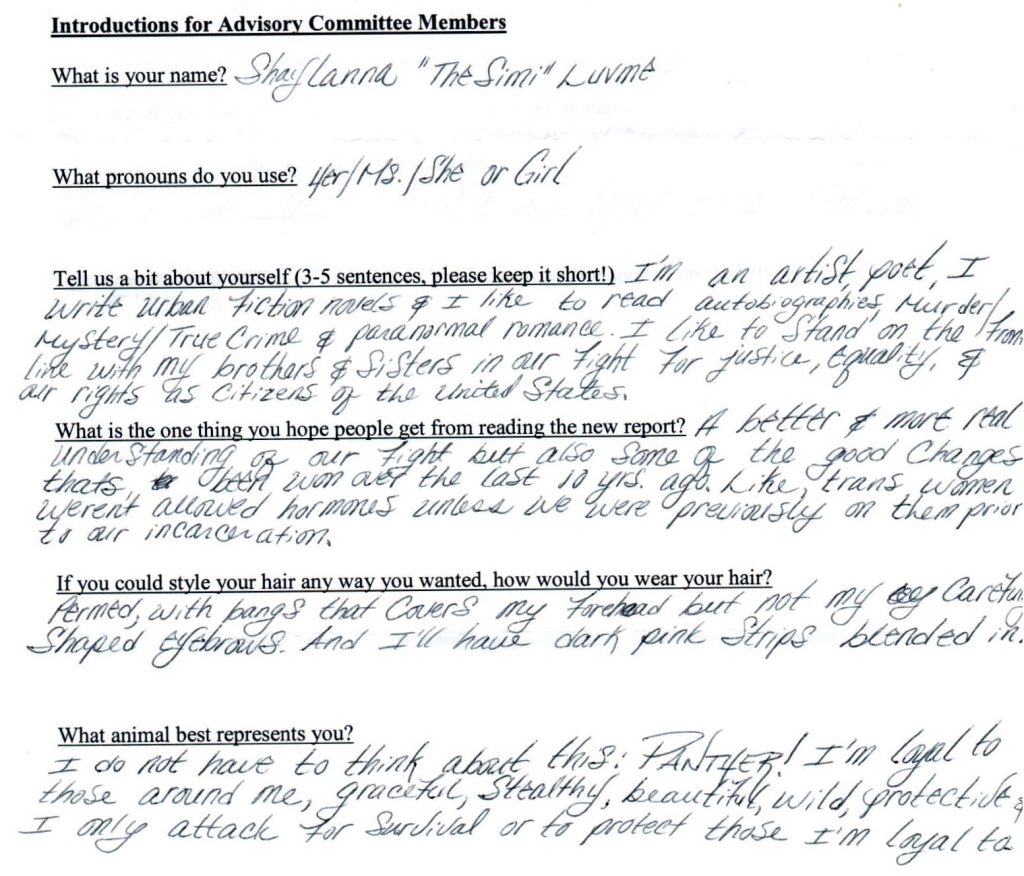 Introductions for Advisory Committee Members
What is your name? Shaylanna "The Simi" Luvme
What pronouns do you use? Her/Ms./She or Girl
Tell us a bit about yourself (3-5 sentences, please keep it short!) I'm an artist, poet, I
write urban fiction novels & I like to read autobiographies, Murder/
Mystery/True Crime & paranormal romance. I like to stand on the front
line with my brothers & sisters in our fight for justice, equality, &
our rights as citizens of the United States.
What is the one thing you hope people get from reading the new report? A better & more real
understanding of our fight but also some of the good changes
thats been won over the last 10 yrs. ago. Like, trans women
werent allowed hormones unless we were previously on them prior
to our incarceration.
If you could style your hair any way you wanted, how would you wear your hair?
Permed, with bangs that covers my forehead but not my
shaped eyebrows. And I'll have dark pink strips blended in.
What animal best represents you?
I do not have to think about this: PANTHER! I'm loyal to
those around me, graceful, stealthy, beautiful, wild, protective &
I only attack for survival or to protect those I'm loyal to